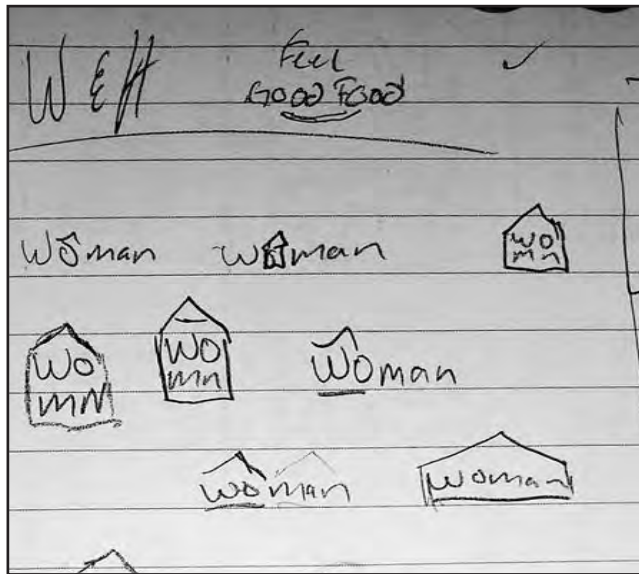 WEH
Feel
GOOD FOOD
Woman Woman WO
mn
WO
MN
WO
mn
Woman
Woman Woman